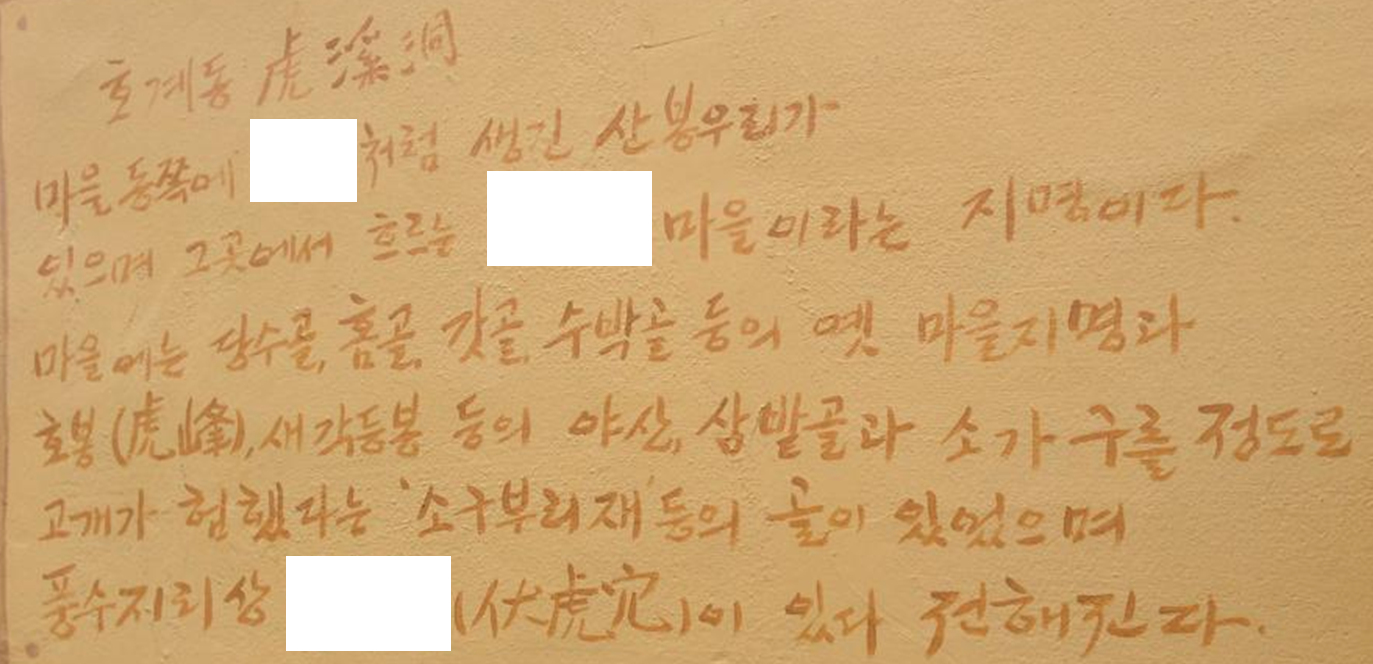 호계동 虎溪洞
마을 동쪽에 처럼 생긴 산봉우리가
있으며 그곳에서 흐르는 마을이라는 지명이다.
마을에는 당수골, 홈골, 갓골, 수박골 등의 옛 마을지명과
호봉(虎峰), 새각등봉 등의 야산, 삼밭골과 소가 구를 정도로
고개가 험했다는 '소구부리재' 등의 골이 있었으며
풍수지리상 (伏虎穴)이 있다 전해진다.